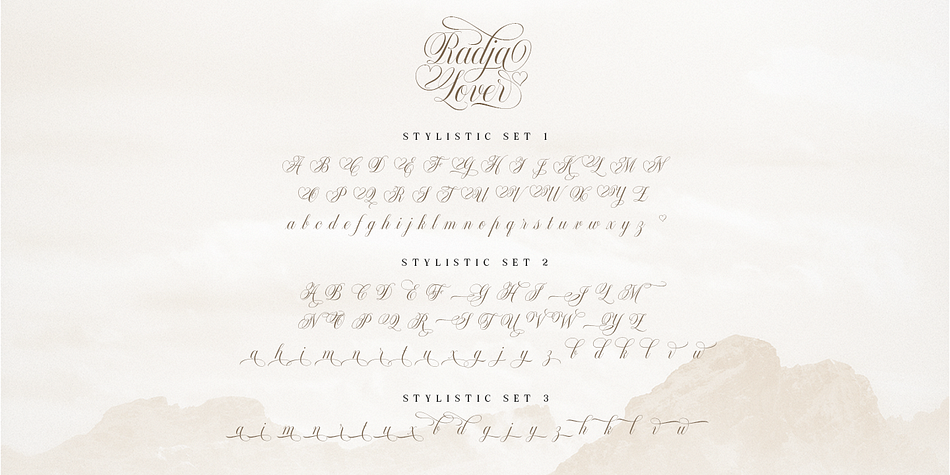 Radja
Lover
STYLISTIC SET 1
A B C D E F G H I J K L M N
O P Q R S T U V W X Y Z
a b c d e f g h i j k l m n o p q r s t u v w x y z
STYLISTIC SET 2
A B C D E F G H I J L M
N O P Q R S T U V W Y Z
a h i m n r t u x g j y z b d h k l v w
STYLISTIC SET 3
a i m n r t u x b d g j y z h k l v w